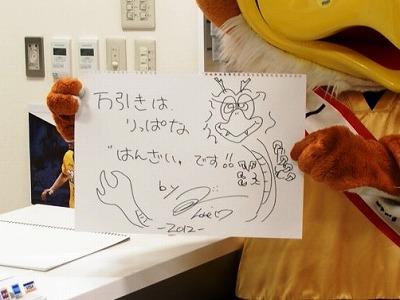 万引きは
りっぱな
"はんざい"です!!
by
-2012-